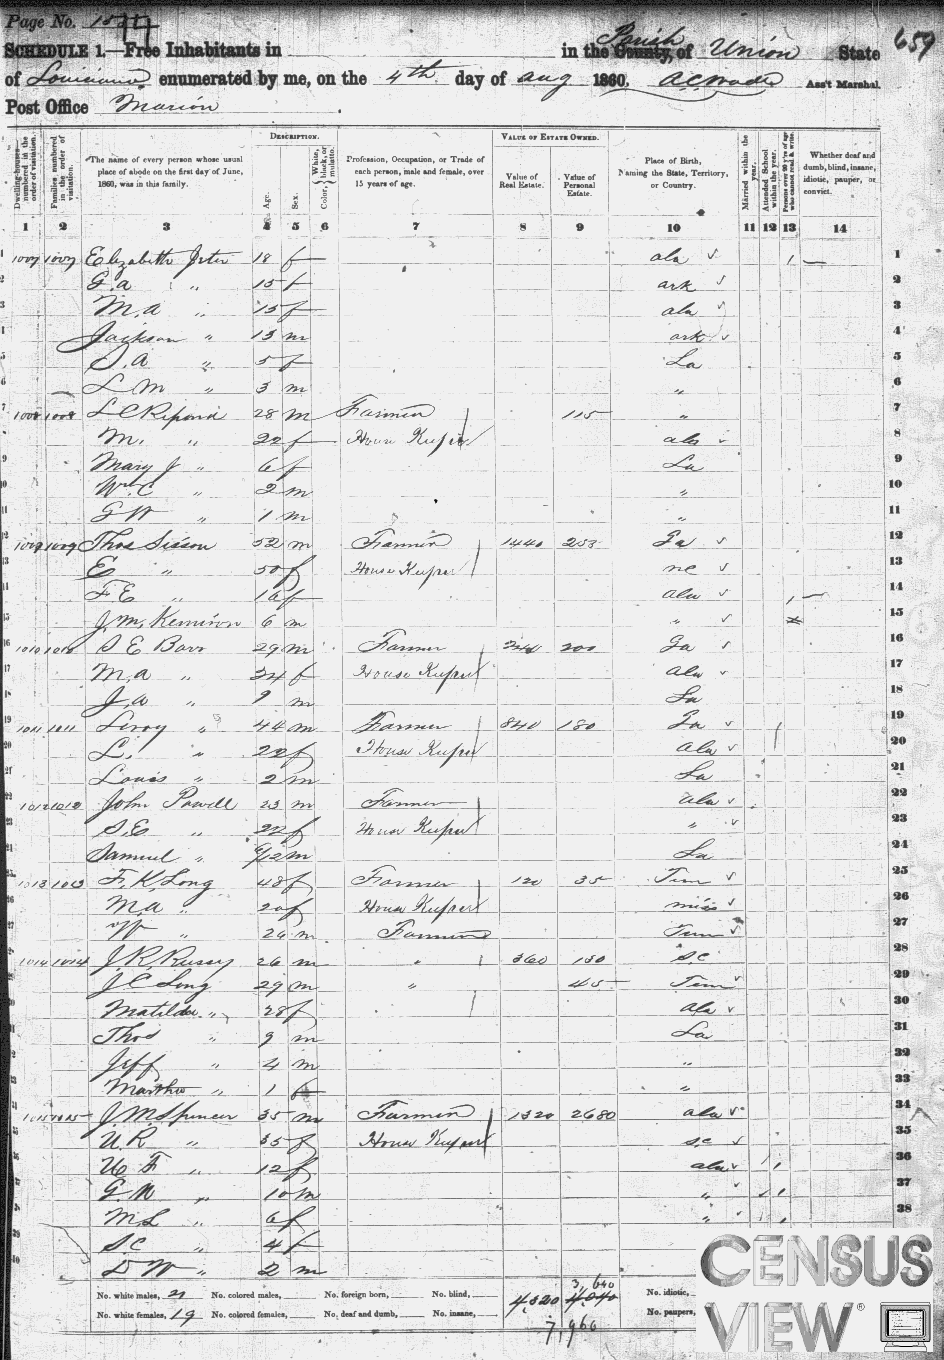 Page No. 154
SCHEDULE 1.—Free Inhabitants in in the County Parish of Union State 659
of Louisiana enumerated by me, on the 4th day of aug 1860. Ass't Marshal.
Post Office Marion
DESCRIPTION. VALUE OF ESTATE OWNED.
Dwelling-houses—numbered in the order of visitation. Families numbered in the order of visitation. The name of every person whose usual place of abode on the first day of June, 1860, was in this family. Age. Sex. Color, White, black, or mulatto. Profession, Occupation, or Trade of each person, male and female, over 15 years of age. Value of Real Estate. Value of Personal Estate. Place of Birth, Naming the State, Territory, or Country. Married within the year. Attended School within the year. Persons over 20 y'rs of age who cannot read & write. Whether deaf and dumb, blind, insane, idiotic, pauper, or convict.
1 2 3 4 5 6 7 8 9 10 11 12 13 14
1 1007 1007 Elizabeth 18 f ala 1
2 G.a " 15 f ark 2
3 M.a " 15 f ala 3
4 Jackson " 13 m ark 4
5 S.A " 5 f La 5
6 L M " 3 m " 6
7 1008 1008 L C 28 m Farmer 115 " 7
8 M. " 22 f House Keeper ala 8
9 Mary J " 6 f La 9
10 Wm C " 2 m " 10
11 G W " 1 m " 11
12 1009 1009 Thos Sisson 52 m Farmer 1440 253 Ga 12
13 E " 50 f House Keeper nc 13
14 F E " 16 f ala 14
15 J. M. 6 m " 15
16 1010 1010 S E Barr 29 m Farmer 200 Ga 16
17 M.a " 24 f House Keeper ala 17
18 J.a " m La 18
19 1011 1011 Leroy " 44 m Farmer 840 180 Ga 19
20 L. " 22 f House Keeper Ala 20
21 Louis " 2 m La 21
22 1012 1012 John Powell 23 m Farmer ala 22
23 S.E " 22 f House Keeper " 23
24 Samuel " 9/12 m La 24
25 1013 1013 F. K. Long 48 f Farmer 120 35 Tenn 25
26 M.a " 20 f House Keeper miss 26
27 " 24 m Farmer Tenn 27
28 1014 1014 J. R. 26 m " 360 130 S.C 28
29 J C Long 29 m " 45 Tenn 29
30 Matilda " 28 f ala 30
31 Thos " 9 m La 31
32 Jeff " 4 m " 32
33 Martha " 1 f " 33
34 1015 1015 J. M. Spencer 35 m Farmer 1320 2680 ala 34
35 U. R " 35 f House Keeper S.C 35
36 U F " 12 f ala 36
37 G. W " 10 m " 37
38 M L " 6 f " 38
39 S. C " 4 f
40 D W " 2 m
No. white males, 21 No. colored males, No. foreign born, No. blind, 4,320 4,040 3,640 No. idiotic,
No. white females, 19 No. colored females, No. deaf and dumb, No. insane, 7,960 No. paupers,
CENSUS
VIEW ®